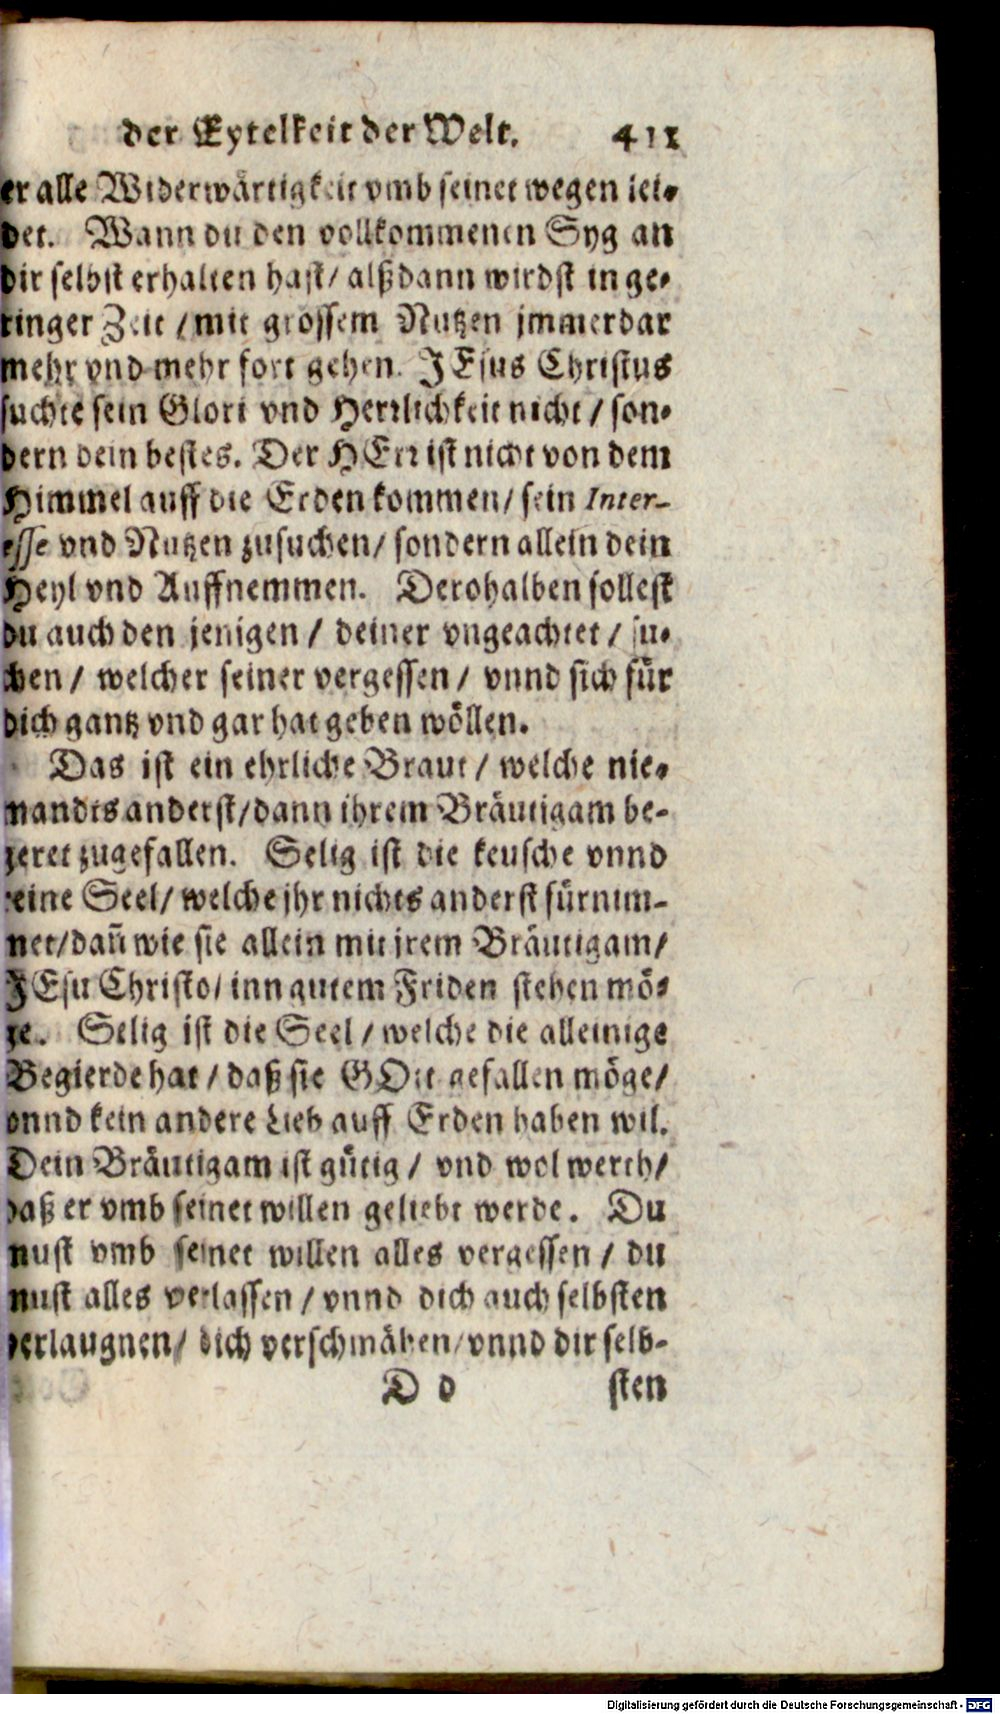 der Eytelkeit der Welt. 411
er alle Widerwärtigkeit vmb seinet wegen lei-
det. Wann du den vollkommenen Syg an
dir selbst erhalten hast/ alßdann wirdst in ge-
ringer Zeit / mit grossem Nutzen jmmerdar
mehr vnd mehr fort gehen. JEsus Christus
suchte sein Glori vnd Herrlichkeit nicht / son-
dern dein bestes. Der HErr ist nicht von dem
Himmel auff die Erden kommen/ sein Inter-
esse vnd Nutzen zusuchen/ sondern allein dein
Heyl vnd Auffnemmen. Derohalben sollest
du auch den jenigen / deiner vngeachtet / su-
chen / welcher seiner vergessen / vnnd sich für
dich gantz vnd gar hat geben wöllen.
Das ist ein ehrliche Braut / welche nie-
mandts anderst/dann ihrem Bräutigam be-
geret zugefallen. Selig ist die keusche vnnd
reine Seel/ welche jhr nichts anderst fürnim-
met/dañ wie sie allein mit jrem Bräutigam/
JEsu Christo/ inn gutem Friden stehen mö-
ge. Selig ist die Seel / welche die alleinige
Begierde hat / daß sie GOtt gefallen möge/
vnnd kein andere Lieb auff Erden haben wil.
Dein Bräutigam ist gütig / vnd wol werth/
daß er vmb seinet willen geliebt werde. Du
must vmb seinet willen alles vergessen / du
must alles verlassen / vnnd dich auch selbsten
verlaugnen/ dich verschmähen/vnnd dir selb-
D d sten
Digitalisierung gefördert durch die Deutsche Forschungsgemeinschaft - DFG